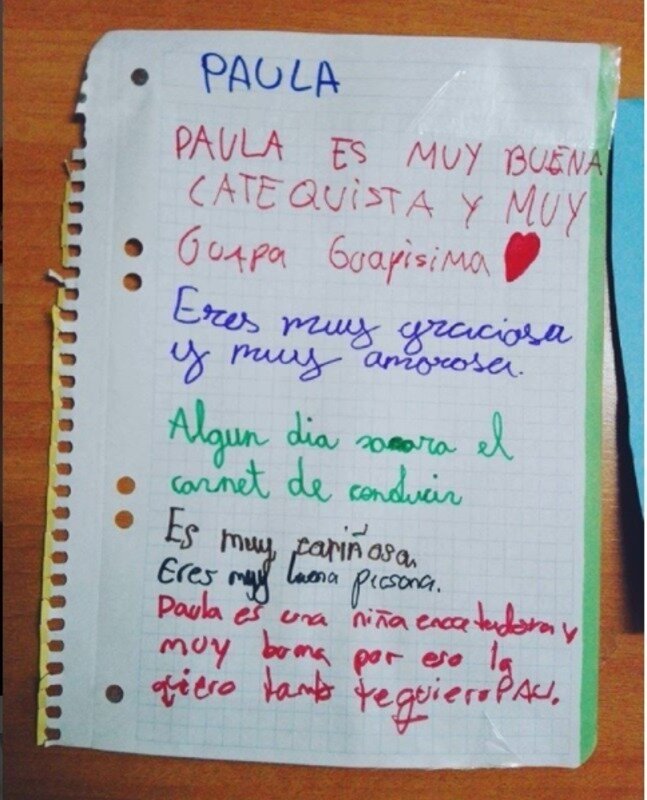 PAULA
PAULA ES MUY BUENA
CATEQUISTA Y MUY
GUAPA GUAPISIMA
Eres muy graciosa
y muy amorosa.
Algun dia sacara el
carnet de conducir
Es muy cariñosa.
Eres muy buena persona.
Paula es una niña encatadora y
muy buena por eso la
qiero tanto te quiero PAU.